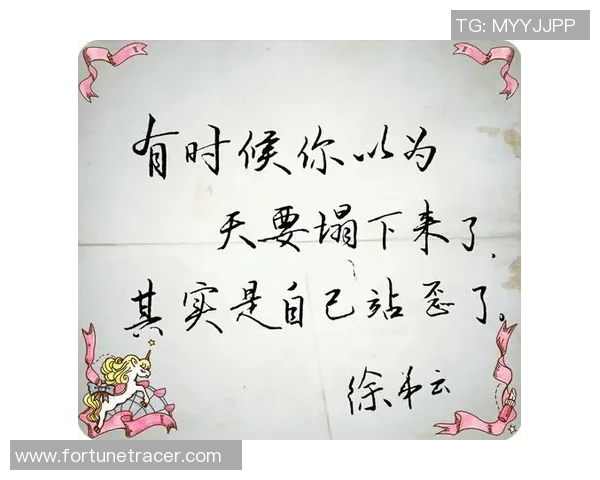 TG: MYYJJPP
有时候你以为
天要塌下来了,
其实是自己站歪了。
徐弟云
www.fortunetracer.com